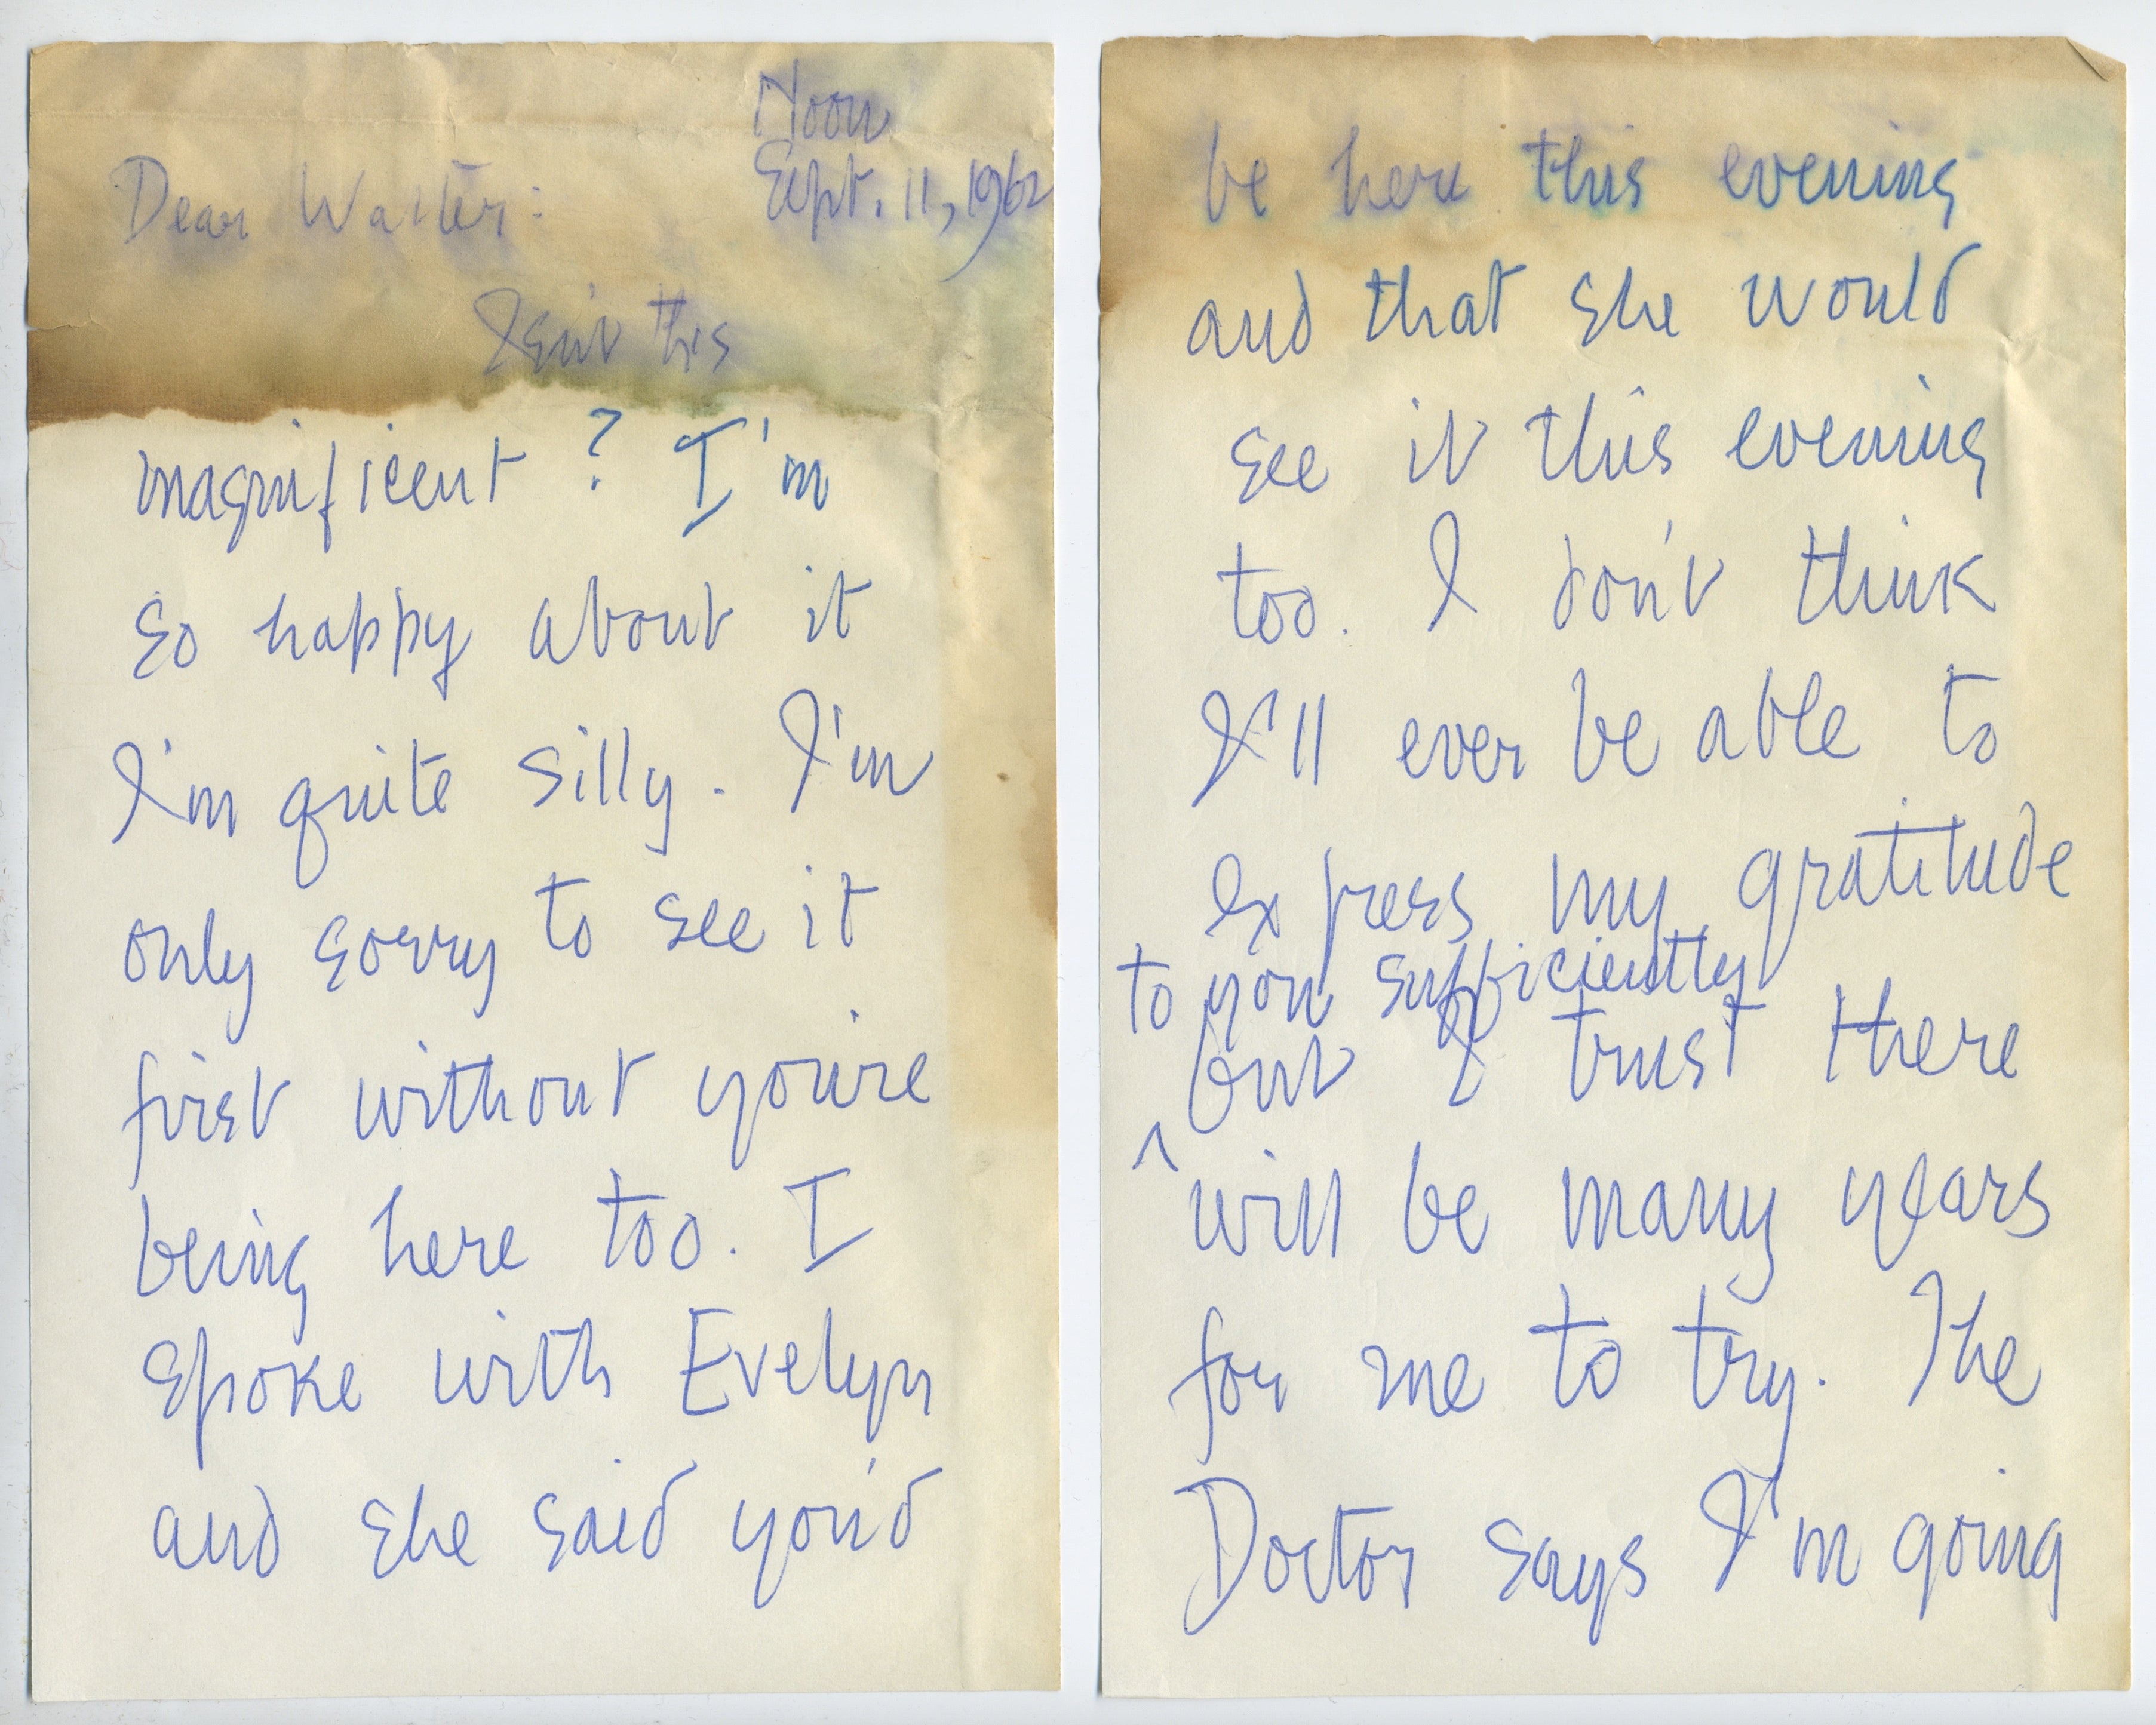 Noon
Sept. 11, 1962
Dear Walter:
Isn't this
magnificent? I'm
so happy about it
I'm quite silly. I'm
only sorry to see it
first without you're
being here too. I
spoke with Evelyn
and she said you'd
be here this evening
and that she would
see it this evening
too. I don't think
I'll ever be able to
express my gratitude
to you sufficiently
but I trust there
^
will be many years
for me to try. The
Doctor says I'm going